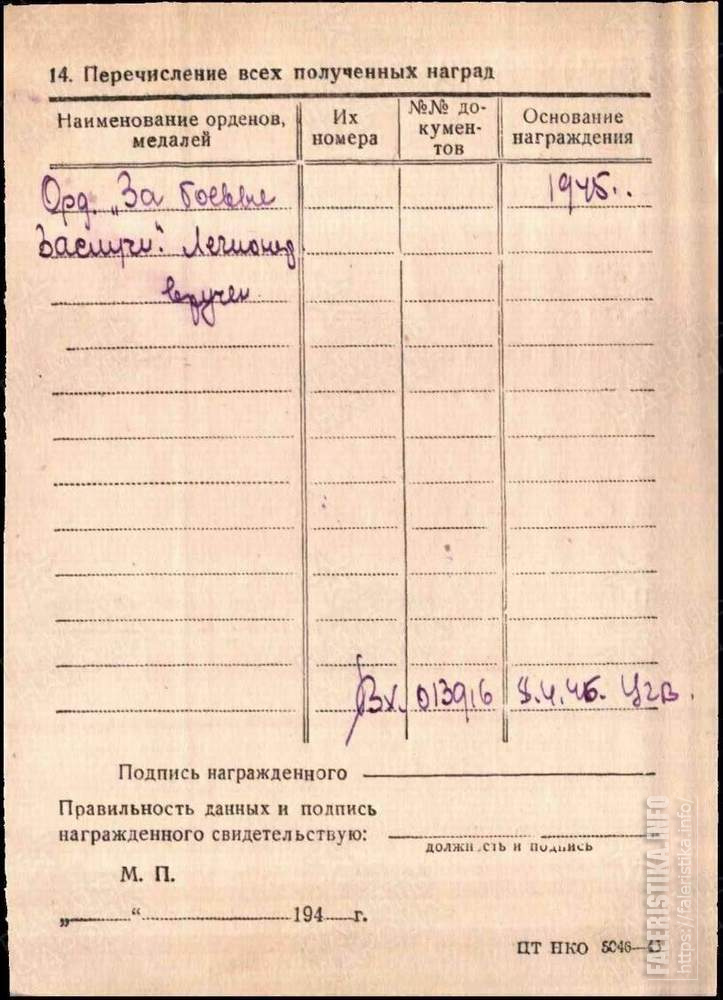 14. Перечисление всех полученных наград
Наименование орденов, медалей
Их номера
№№ до-
кумен-
тов
Основание награждения
Орд. „За боевые
Заслуги“. Легионер
вручен
1945..
Вх. 013916 8.4.46. ЦГВ.
Подпись награжденного
Правильность данных и подпись
награжденного свидетельствую:
должность и подпись
М. П.
„ “ 194 г.
ЦТ НКО 5046—45
FALERISTIKA.INFO
https://faleristika.info/